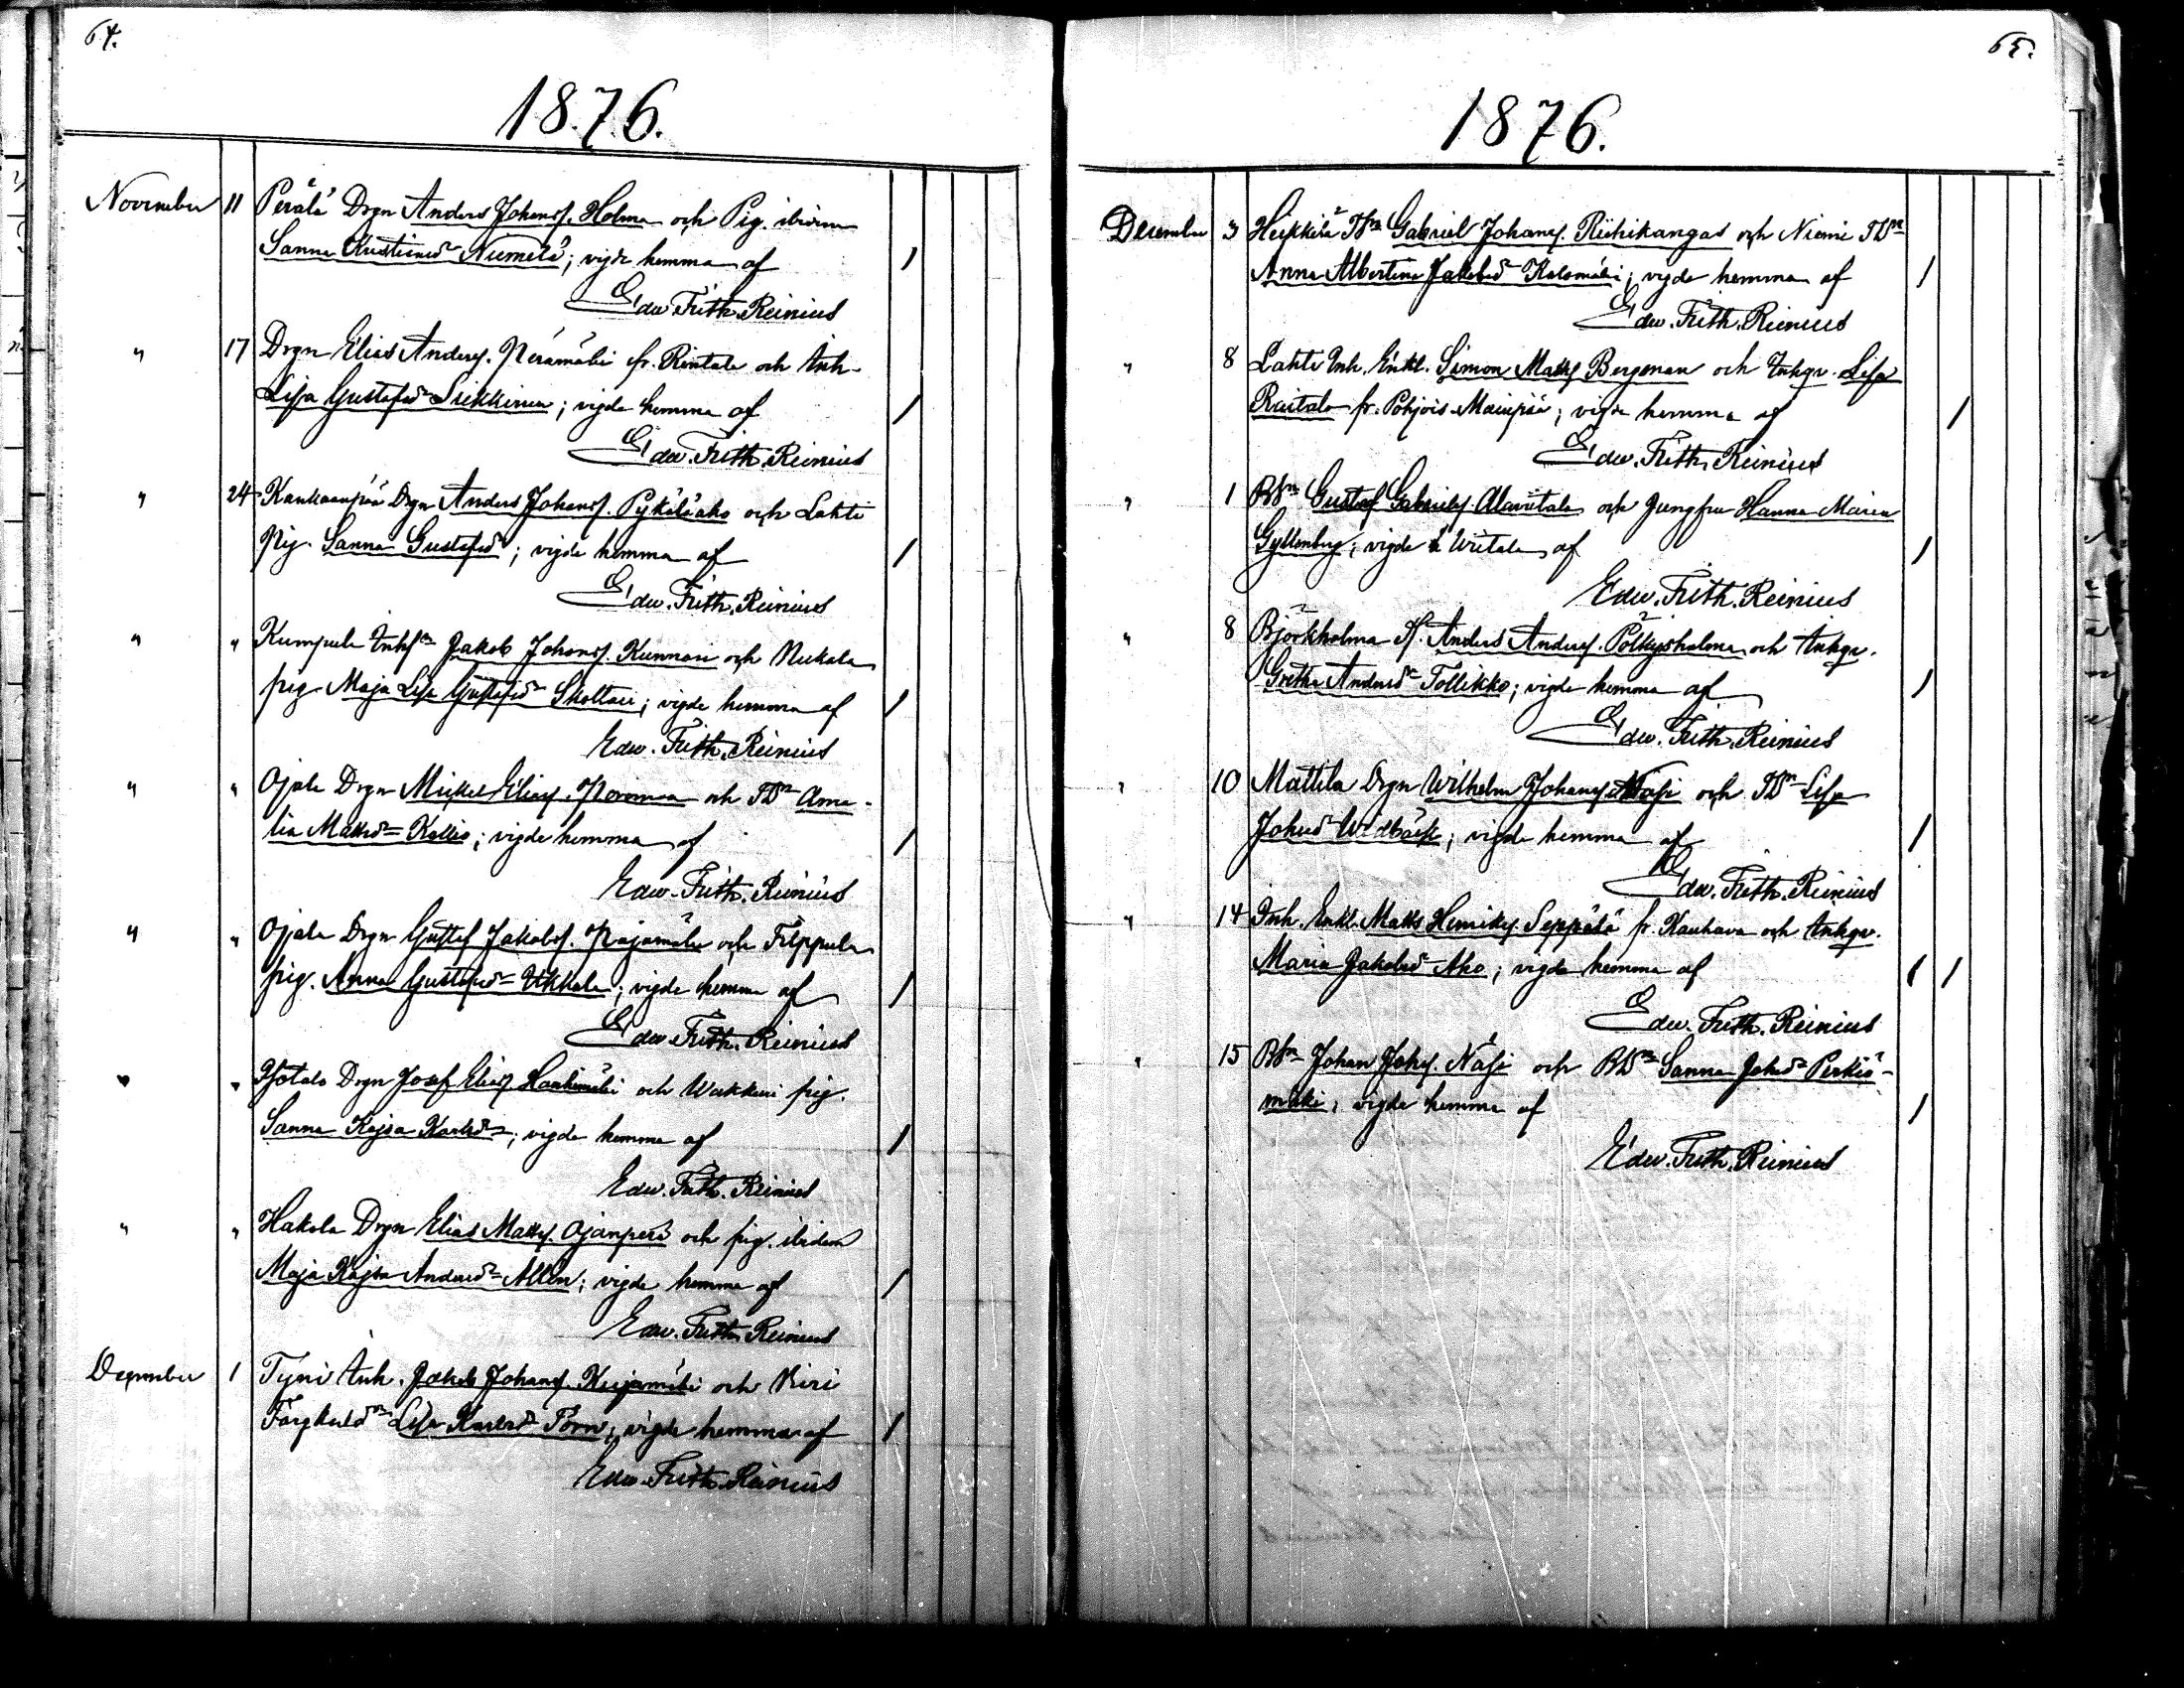 64.
1876.
November 11 Perälä Drgn Anders Johanss. Holma och Pig. ibidem
Sanna ; vigde hemma af
Edw. Frith. Reinius
" 17 Drgn Elias Anderss. Perämäki fr. Rintala och Inh.
Lisa Gustafsdr ; vigde hemma af
Edw. Frith. Reinius
" 24 Kankaanpää Drgn Anders Johanss. Pykäläaho och Lahti
Pig. Sanna Gustafsdr; vigde hemma af
Edw. Frith. Reinius
" " Kumpula Inhsn Jakob Johanss. Kunnari och
pig. Maja Lisa Gustafsdr ; vigde hemma af
Edw. Frith. Reinius
" " Ojala Drgn Mickel Eliass. och TDr Ama-
lia Mattsdr Kallio; vigde hemma af
Edw. Frith. Reinius
" " Ojala Drgn Gustaf Jakobss. och Filppula
pig. Anna Gustafsdr Ukkola; vigde hemma af
Edw. Frith. Reinius
" " Drgn Josef Eliass. och pig.
Sanna Kajsa Karlsdr; vigde hemma af
Edw. Frith. Reinius
" " Hakola Drgn Elias Matts. Ojanperä och pig. ibidem
Maja Kajsa Andersdr Allén; vigde hemma af
Edw. Frith. Reinius
December 1 Tyni Inh. Jakob Johanss. Kujamäki och Kiri
Lisa Karlsdr ; vigde hemma af
Edw. Frith. Reinius
65.
1876.
December 3 Heikkilä TSn Gabriel Johanss. Riihikangas och Niemi TDr
Anna Albertina Jakobsdr ; vigde hemma af
Edw. Frith. Reinius
" 8 Lahti Inh. Enkl. Simon Matts. Bergman och Inhqv. Lisa
fr. Pohjois ; vigde hemma af
Edw. Frith. Reinius
" 1 BSn Gustaf Gabrielss. Alaviitala och Jungfru Hanna Maria
Gyllenberg; vigde å Wiitala af
Edw. Frith. Reinius
" 8 Björkholma Anders Anderss. Pölkyshalme och Inhqv.
Greta Andersdr Tollikko; vigde hemma af
Edw. Frith. Reinius
" 10 Mattila Drgn Wilhelm Johanss. och TDr Lisa
Johsdr Widbäck; vigde hemma af
Edw. Frith. Reinius
" 14 Inh. Enkl. Matts Henriks. Seppälä fr. Kauhava och Inhqv.
Maria Jakobsdr Aho; vigde hemma af
Edw. Frith. Reinius
" 15 BSn Johan Johss. Näsi och BDr Sanna Johsdr Perkiö-
mäki; vigde hemma af
Edw. Frith. Reinius